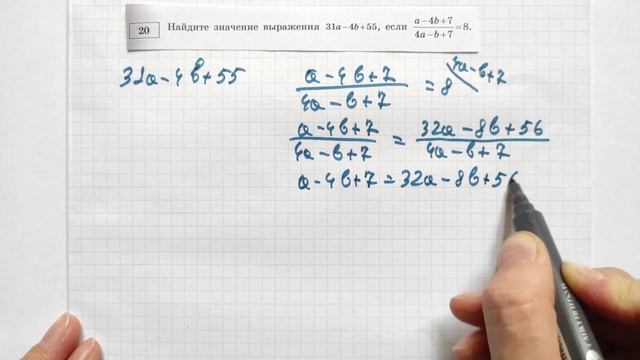 20 Найдите значение выражения 31a−4b+55, если (a−4b+7)/(4a−b+7)=8.
31a−4b+55
(a−4b+7)/(4a−b+7) = 8 \4a−b+7
(a−4b+7)/(4a−b+7) = (32a−8b+56)/(4a−b+7)
a−4b+7=32a−8b+56